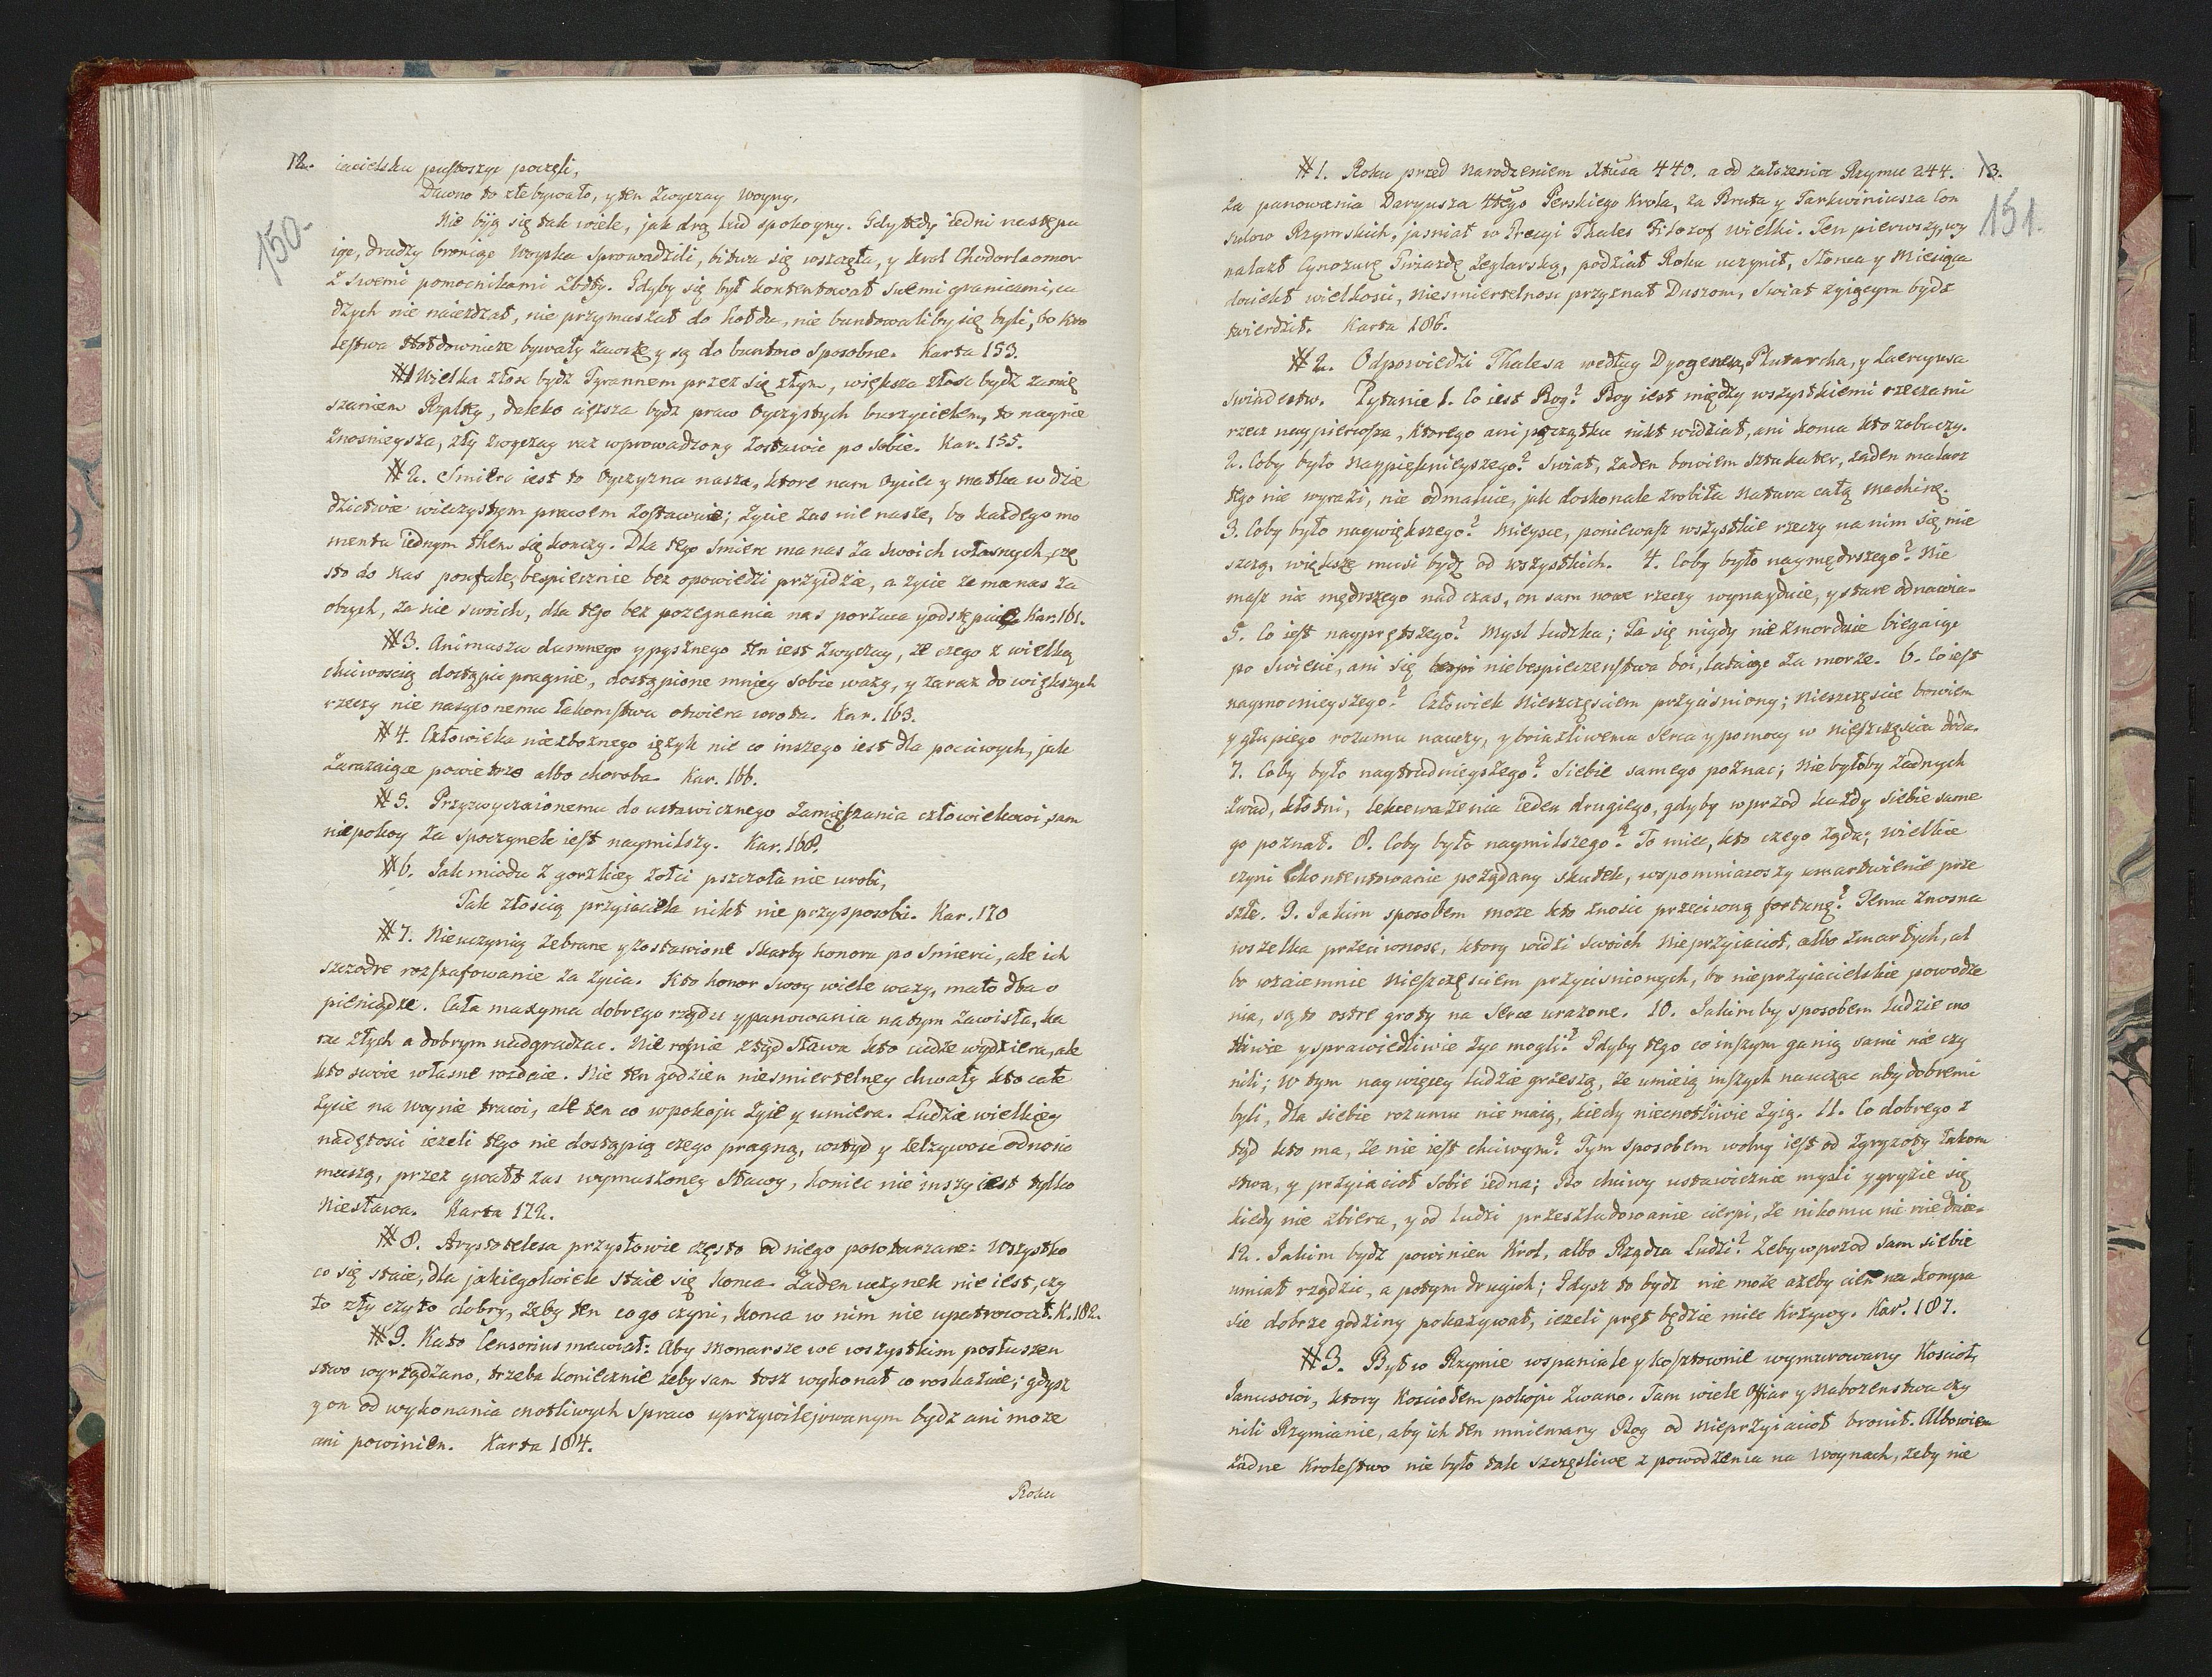 12. iacielsku pustoszyc poczęli,
Dawno to złe bywało, y ten zwyczay woyny,
150.
Nie biją się tak wiele, jak drą lud spokoyny. Gdy tedy iedni nastepu
iąc, drudzy broniąc Woyska sprowadzili, bitwa się wszczęła, y krol Chodorlaomor
z swemi pomocnikami zbity. Gdyby się był kontentował swemi granicami, cu
dzych nie naieżdzał, nie przymuszał do hołdu, nie buntowaliby się byli, bo Kro
lestwa Hołdownicze bywały zawsze y są do buntow sposobne. Karta 153.
# 1 Wielka złosc bydz Tyrannem przez się złym, większa złosc bydz zamię
szaniem Rzpltey, daleko cięzsza bydz praw Oyczystych burzycielem, to naynie
znosnieysza, zły zwyczay raz wprowadzony zostawic po sobie. Kar. 155.
# 2. Smierc iest to Oyczyzna nasza, ktore nam Oyciec y matka w dzie
dzictwie wieczystym prawem zostawuie; życie zas nie nasze, bo każdego mo
mentu iednym tchem się konczy. Dla tego smierc ma nas za swoich własnych, czę
sto do nas poufale, bespiecznie bez opowiedzi przyidzie, a zycie ze ma nas za
obcych, za nie swoich, dla tego bez pozegnania nas porzuca y odstępuie. Kar. 161.
# 3. Animuszu dumnego y pysznego ten iest zwyczay, że czego z wielką
chciwoscią dostąpic pragnie, dostąpione mniey sobie waży, y zaraz do większych
rzeczy nie nasyconemu łakomstwu otwiera wrota. Kar. 163.
# 4. Człowieka niezbożnego ięzyk nie co inszego iest dla poćciwych, jak
zarazaiące powietrze albo choroba. Kar. 166.
# 5. Przyzwyczaionemu do ustawicznego zamięszania człowiekowi, sam
niepokoy za spoczynek iest naymilszy. Kar. 168.
# 6. Jak miodu z gorzkiey żołci pszczoła nie urobi,
Tak złoscią przyiaciela nikt nie przysposobi. Kar. 170
# 7. Nie uczynią zebrane y zostawione skarby honoru po smierci, ale ich
szczodre rozszafowanie za życia. Kto honor swoy wiele wazy, mało dba o
pieniądze. Cała maxyma dobrego rządu y panowania na tym zawisła, ka
rac złych a dobrym nadgradzac. Nie rosnie ztąd sława kto cudze wydziera, ale
kto swoie własne rozdaie. Nie ten godzien niesmiertelney chwały kto całe
życie na woynie trawi, ale ten co w pokoju żyie y umiera. Ludzie wielkiey
nadętosci ieżeli tego nie dostąpią czego pragną, wstyd y lelzywosc odnosic
muszą, przez gwałt zas wymuszoney sławy, koniec nie inszy iest tylko
niesława. Karta 172.
# 8. Arystotelesa przysłowie często od niego powtarzane: Wszystko
co się staie, dla jakiegokwiek staie się konca. Zaden uczynek nie iest, czy
to zły czy to dobry, żeby ten co go czyni, konca w nim nie upatrował. K. 182.
# 9. Kato Censorius mawiał: Aby Monarsze we wszystkim posłuszen
stwo wyrządzano, trzeba koniecznie zeby sam tosz wykonał co roskazuie; gdysz
y on od wykonania cnotliwych spraw uprzywilejowanym bydz ani moze
ani powinien. Karta 184.
Roku
# 1. Roku przed Narodzeniem Xtusa 440. a od założenia Rzymu 244. 13.
za panowania Daryusza Hłego Perskiego Krola, za Bruta y Tarkwiniusza Con
151.
sulow Rzymskich, jasniał w Grecyi Thales Filozof wielki. Ten pierwszy, wy
nalazł Cynozurę Gwiazdę Zeglarską, podział Roku uczynił, Słonca y Miesiąca
dociekł wielkosci, niesmiertelnosc przyznał Duszom, Swiat zyiącym bydz
twierdził. Karta 186.
# 2. Odpowiedzi Thalesa według Dyogenesa, Plutarcha, y Laercyusa
swiadectw. Pytanie 1. Co iest Bog? Bog iest między wszystkiemi rzeczami
rzecz naypierwsza, ktorego ani początku nikt widział, ani konca kto zobaczy.
2. Coby było naypięknieyszego? Swiat, żaden bowiem sztukater, zaden malarz
tego nie wyrazi, nie odmaluie, jak doskonale zrobiła natura całą machinę.
3. Coby było naywiększego? Mieysce, ponieważ wszystkie rzeczy na nim się mie
szczą, większe musi bydz od wszystkich. 4. Coby było naymędrszego? Nie
masz nic mędrszego nad czas, on sam nowe rzeczy wynayduie, y stare odnawia.
5. Co iest nayprętszego? Mysl ludzka; Ta się nigdy nie zmorduie biegaiąc
po swiecie, ani się niebespieczenstwa boi, lataiąc za morze. 6. Co iest
naymocnieyszego? Człowiek nieszczęsciem przyciśniony; nieszczęscie bowiem
y głupiego rozumu nauczy, y boiazliwemu serca y pomocy w nieszczęsciu doda.
7. Coby było naytrudnieyszego? Siebie samego poznac; nie byłoby żadnych
zwad, kłotni, lekceważenia ieden drugiego, gdyby wprzod każdy siebie same
go poznał. 8. Coby było naymilszego? To miec, kto czego żąda; wielkie
czyni ukontentowanie pożądany skutek, wspomniawszy umartwienie prze
szłe. 9. Jakim sposobem moze kto znosic przeciwną fortunę? Temu znosna
wszelka przeciwnosc, ktory widzi swoich nieprzyiacioł, albo zmarłych, al
bo wzaiemnie nieszczęsciem przycisnionych, bo nieprzyiacielskie powodze
nia, są to ostre groty na serce urażone. 10. Jakimby sposobem ludzie cno
tliwie y sprawiedliwie życ mogli? Gdyby tego co inszym ganią sami nie czy
nili; w tym naywięcey ludzie grzeszą, że umieią inszych nauczac aby dobremi
byli, dla siebie rozumu nie maią, kiedy niecnotliwie żyią. 11. Co dobrego z
tąd kto ma, że nie iest chciwym? Tym sposobem wolny iest od zgryzoty łakom
stwa, y przyiacioł sobie iedna; Bo chciwy ustawicznie mysli y gryzie się
kiedy nie zbiera, y od ludzi przesladowanie cierpi, że nikomu nic nie daie.
12. Jakim bydz powinien Krol, albo Rządca Ludzi? Zeby wprzod sam siebie
umiał rządzic, a potym drugich; Gdysz to bydz nie może ażeby cień na kompa
sie dobrze godziny pokazywał, ieżeli pręt będzie miec krzywy. Kar. 187.
# 3. Był w Rzymie wspaniale y kosztownie wymurowany Koscioł
Janusowi, ktory Kosciołem pokoju zwano. Tam wiele Offiar y nabozenstwa czy
nili Rzymianie, aby ich ten mniemany Bog od nieprzyiacioł bronił. Albowiem
żadne Krolestwo nie było tak szczęsliwe z powodzenia na woynach, żeby nie